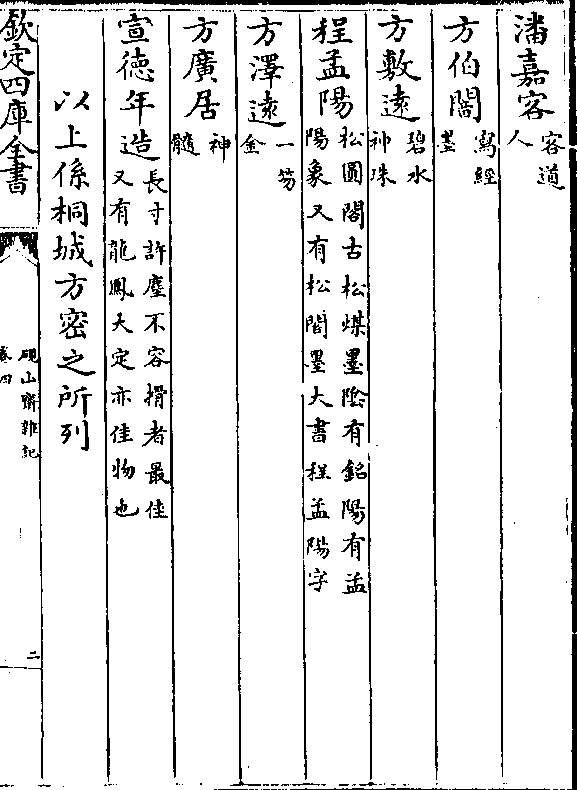 潘嘉客客道人
方伯闇寫經墨
方敷遠碧水神珠
程孟陽松圓閣古松煤墨陰有銘陽有孟陽象又有松閣墨大書程孟陽字
方澤遠一笏金
方廣居神髓
宣德年造長寸許塵不容搰者最佳又有龍鳳大定亦佳物也
以上係桐城方密之所列
欽定四庫全書
硯山齋雜記
卷四
二